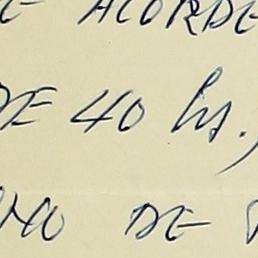 E ACORDE
DE 40 hs.,
NO DE